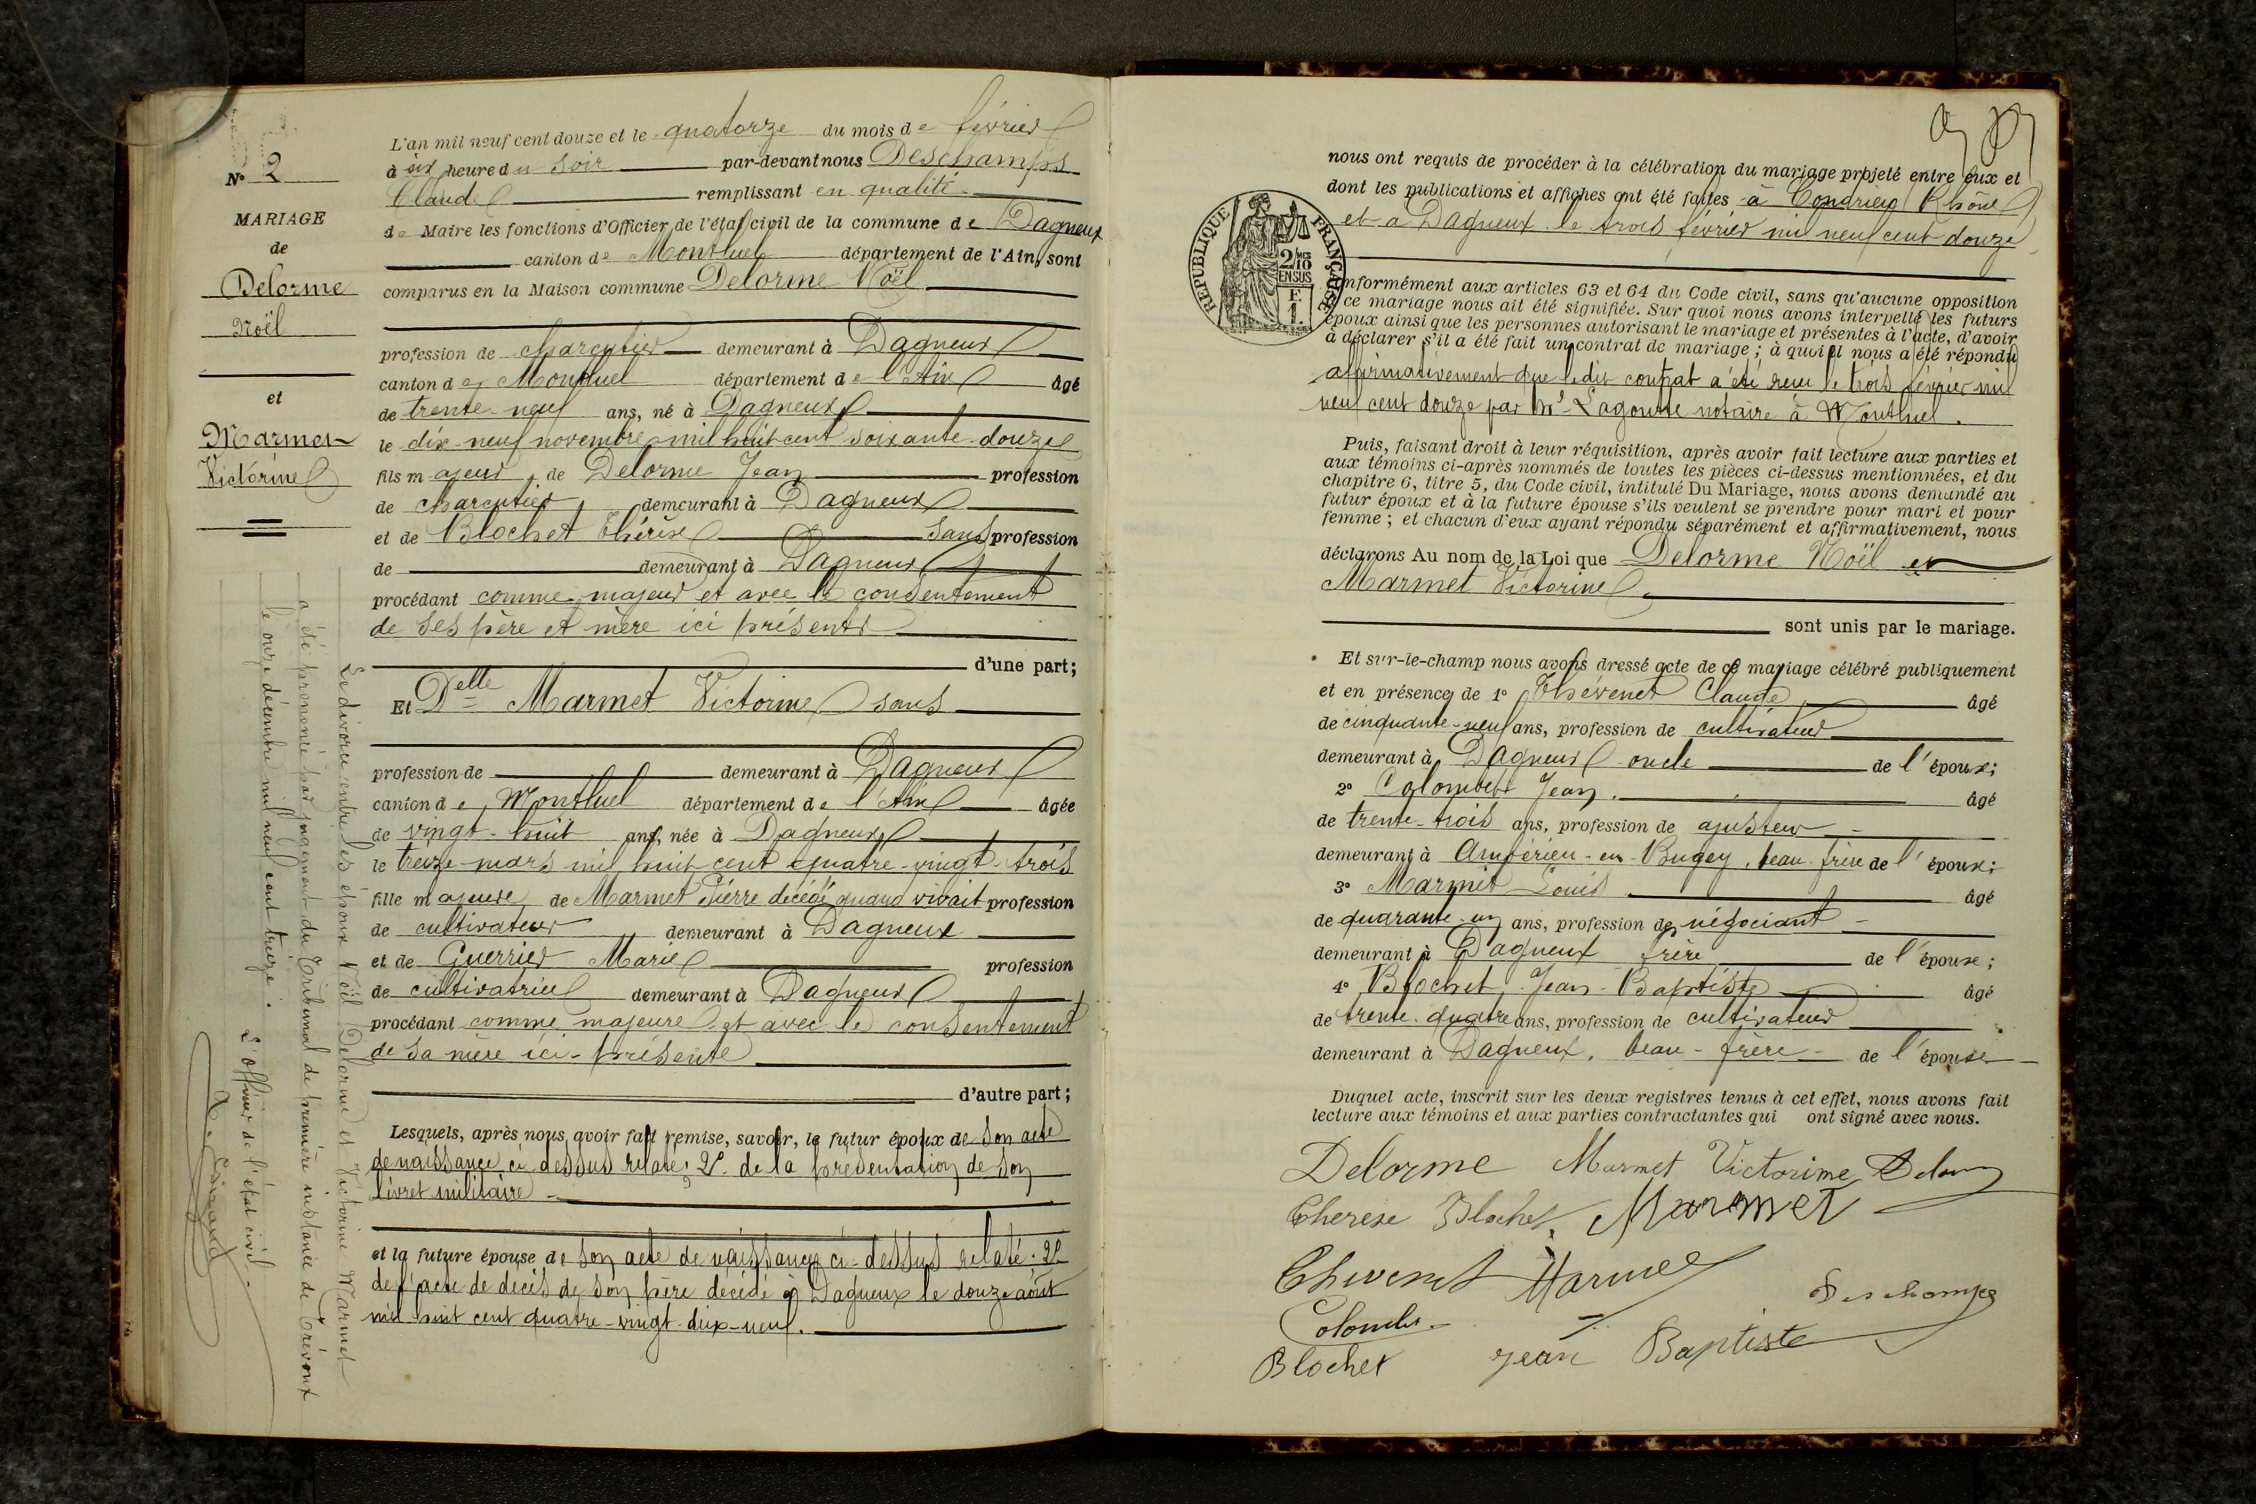 N° 2
MARIAGE
de
Delorme
Noël
et
Marmet
Victorine
L'an mil neuf cent douze et le quatorze du mois de février
à six heure du soir par-devant nous Deschamps
Claude remplissant en qualité
de Maire les fonctions d'Officier de l'état civil de la commune de Dagneux
canton de Montluel département de l'Ain, sont
comparus en la Maison commune Delorme Noël
profession de charcutier demeurant à Dagneux
canton de Montluel département de l'Ain âgé
de trente-neuf ans, né à Dagneux
le dix-neuf novembre mil huit cent soixante-douze
fils majeur de Delorme Jean profession
de charcutier demeurant à Dagneux
et de Blochet Thérèse sans profession
de demeurant à Dagneux
procédant comme majeur et avec le consentement
de ses père et mère ici présents
d'une part;
Et Delle Marmet Victorine sans
profession de demeurant à Dagneux
canton de Montluel département de l'Ain âgée
de vingt-huit ans, née à Dagneux
le treize mars mil huit cent quatre-vingt-trois
fille majeure de Marmet Pierre décédé quand vivait profession
de cultivateur demeurant à Dagneux
et de Guerrier Marie profession
de cultivatrice demeurant à Dagneux
procédant comme majeure et avec le consentement
de sa mère ici-présente
d'autre part;
Lesquels, après nous avoir fait remise, savoir, le futur époux de son acte
de naissance ci dessus relaté; 2° de la présentation de son
livret militaire
et la future épouse de son acte de naissance ci-dessus relaté. 2°
de l'acte de décès de son père décédé à Dagneux le douze août
mil huit cent quatre-vingt-dix-neuf.
Le divorce entre les époux Noël Delorme et Victorine Marmet
a été prononcé par jugement du Tribunal de première instance de Trévoux
le onze décembre mil neuf cent treize.
L'officier de l'état civil
nous ont requis de procéder à la célébration du mariage projeté entre eux et
dont les publications et affiches ont été faites à Condrieu (Rhône)
et à Dagneux le trois février mil neuf cent douze
REPUBLIQUE FRANÇAISE
2/10
EN SUS
F.
1.
nformément aux articles 63 et 64 du Code civil, sans qu'aucune opposition
ce mariage nous ait été signifiée. Sur quoi nous avons interpellé les futurs
époux ainsi que les personnes autorisant le mariage et présentes à l'acte, d'avoir
à déclarer s'il a été fait un contrat de mariage; à quoi il nous a été répondu
affirmativement que ledit contrat a été reçu le trois février mil
neuf cent douze par Me Lagoutte notaire à Montluel.
Puis, faisant droit à leur réquisition, après avoir fait lecture aux parties et
aux témoins ci-après nommés de toutes les pièces ci-dessus mentionnées, et du
chapitre 6, titre 5, du Code civil, intitulé Du Mariage, nous avons demandé au
futur époux et à la future épouse s'ils veulent se prendre pour mari et pour
femme; et chacun d'eux ayant répondu séparément et affirmativement, nous
déclarons Au nom de la Loi que Delorme Noël et
Marmet Victorine
sont unis par le mariage.
Et sur-le-champ nous avons dressé acte de ce mariage célébré publiquement
et en présence de 1° Thévenet Claude âgé
de cinquante-neuf ans, profession de cultivateur
demeurant à Dagneux oncle de l'époux;
2° Colombet Jean âgé
de trente-trois ans, profession de ajusteur
demeurant à Ambérieu-en-Bugey, beau-frère de l'époux;
3° Marmet Louis âgé
de quarante-un ans, profession de négociant
demeurant à Dagneux frère de l'épouse;
4° Blochet Jean-Baptiste âgé
de trente-quatre ans, profession de cultivateur
demeurant à Dagneux, beau-frère de l'épouse
Duquel acte, inscrit sur les deux registres tenus à cet effet, nous avons fait
lecture aux témoins et aux parties contractantes qui ont signé avec nous.
Delorme Marmet Victorine Delorme
Therese Blochet Marmet
Thevenet Marmet
Deschamps
Colombet
Blochet jean Baptiste